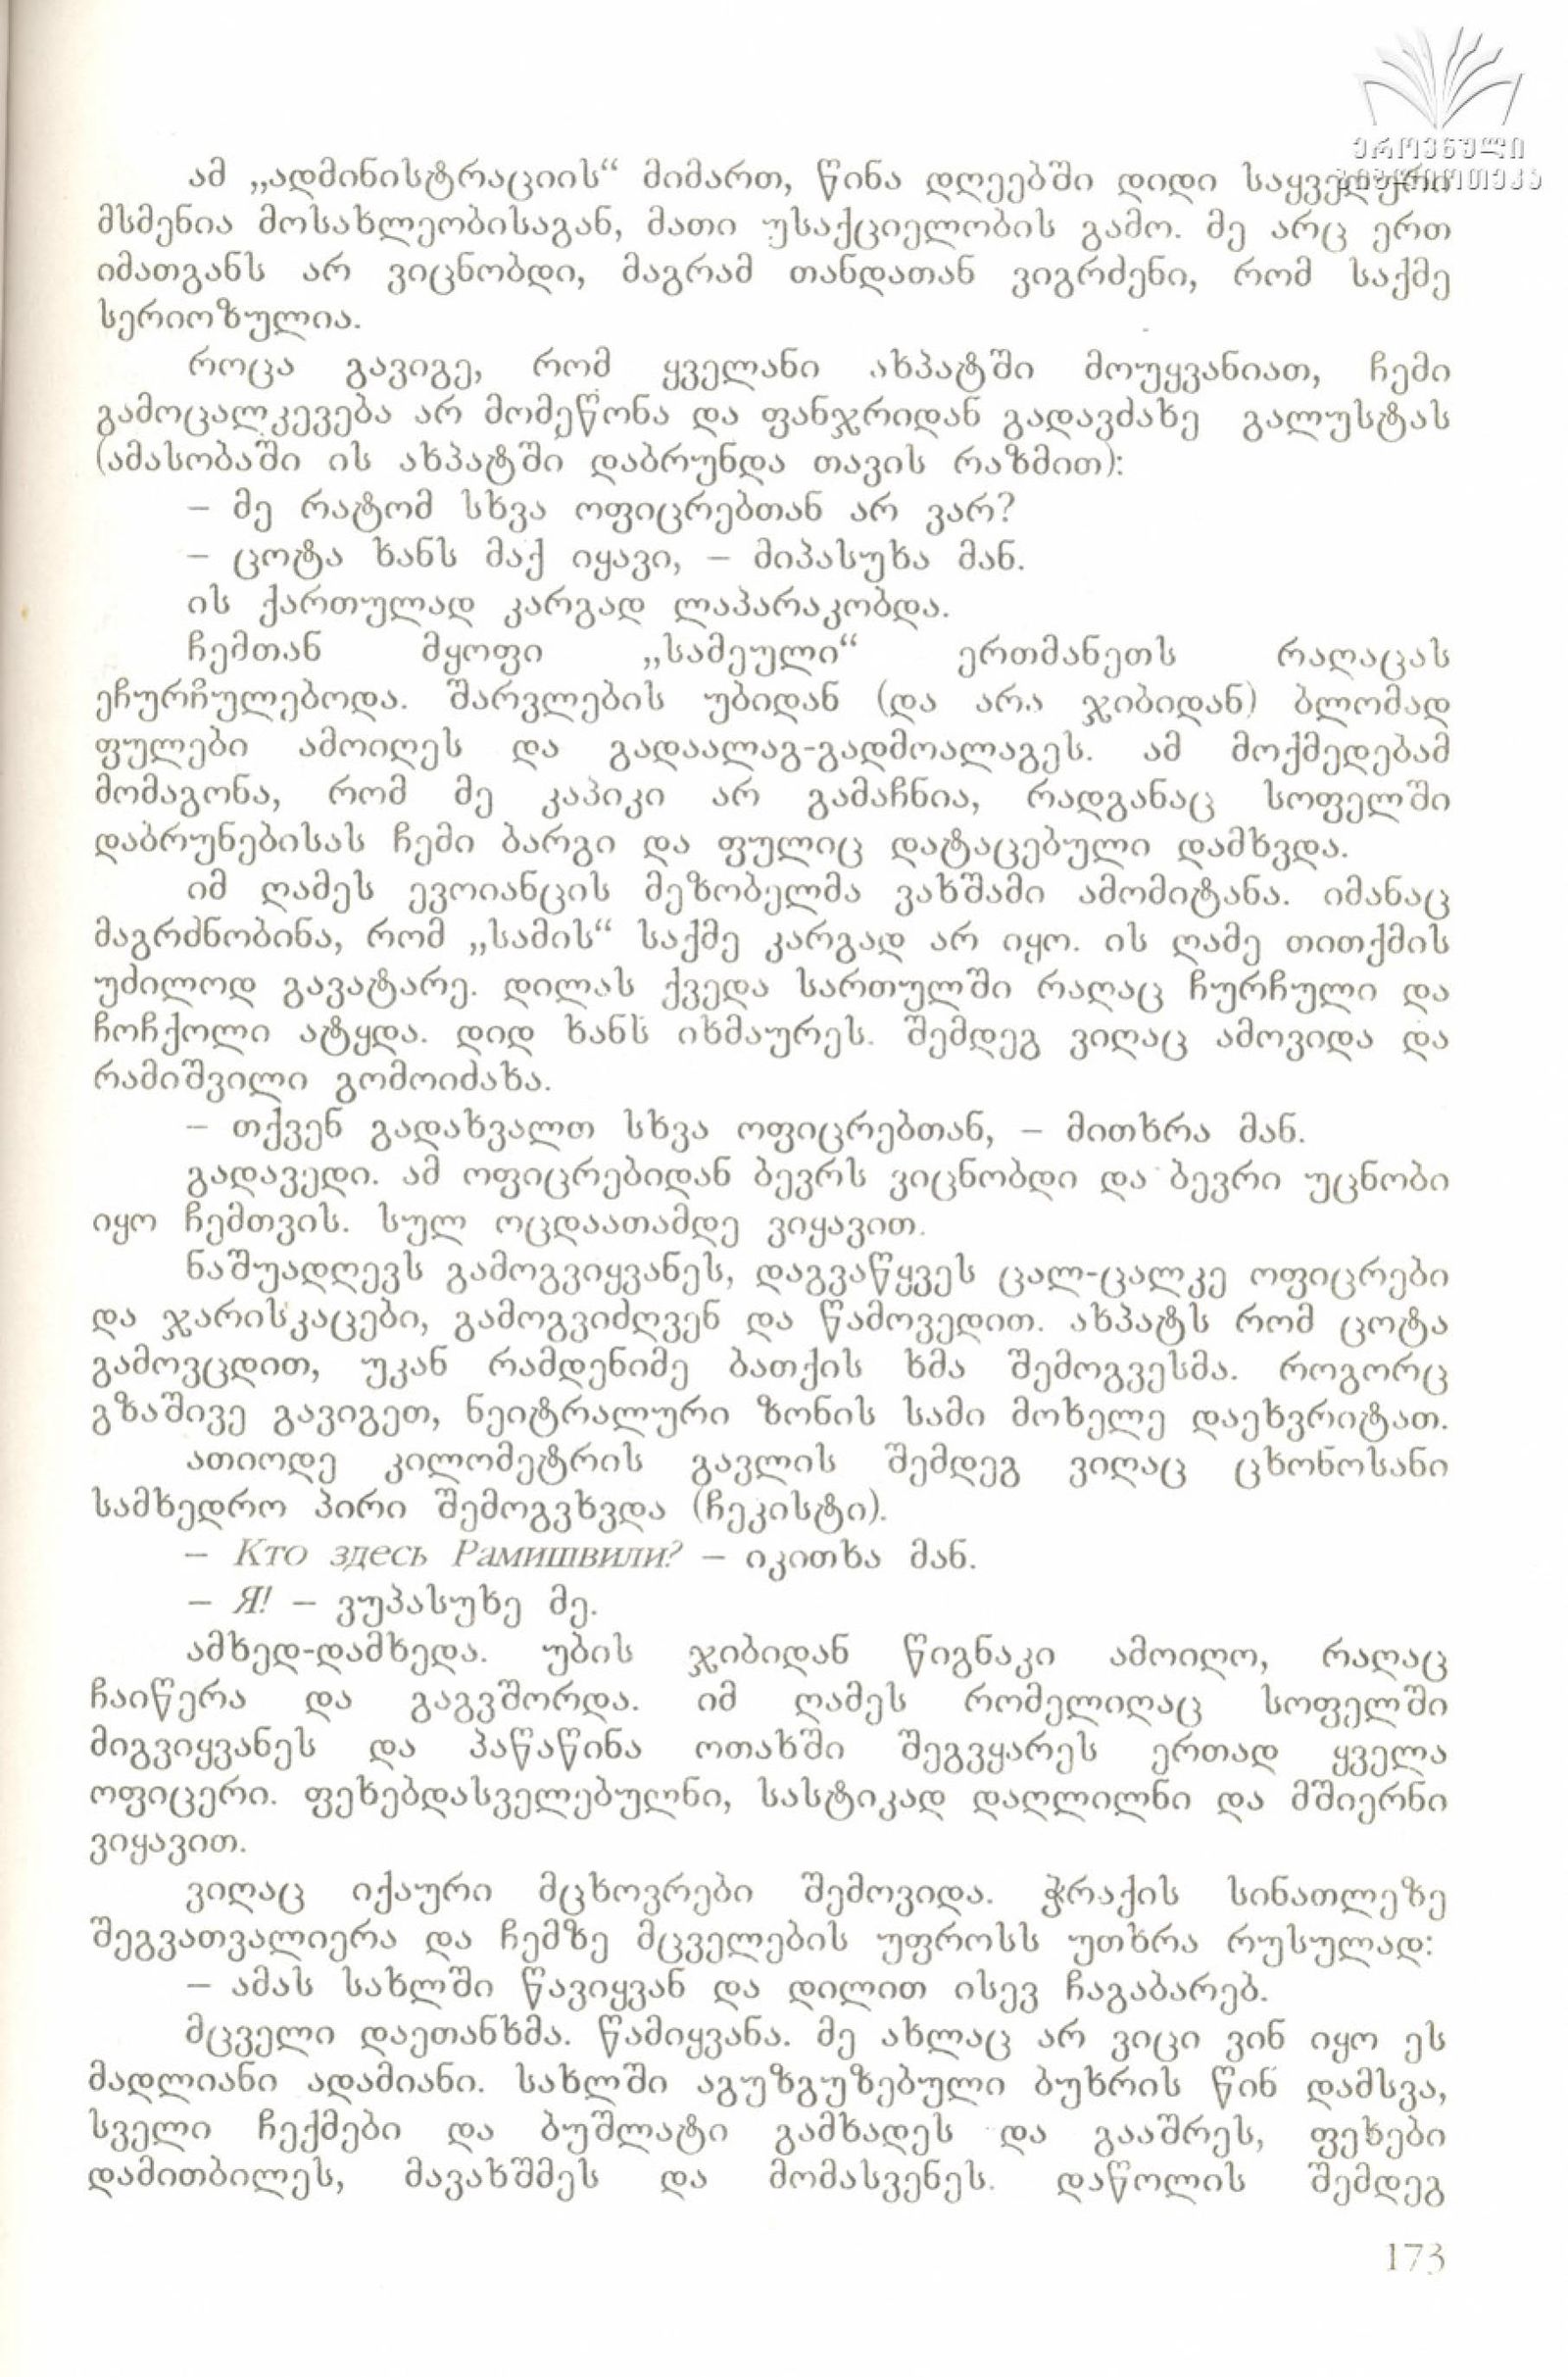 ეროვნული
ბიბლიოთეკა
ამ „ადმინისტრაციის“ მიმართ, წინა დღეებში დიდი საყვედური
მსმენია მოსახლეობისაგან, მათი უსაქციელობის გამო. მე არც ერთ
იმათგანს არ ვიცნობდი, მაგრამ თანდათან ვიგრძენი, რომ საქმე
სერიოზულია.
როცა გავიგე, რომ ყველანი ახპატში მოუყვანიათ, ჩემი
გამოცალკევება არ მომეწონა და ფანჯრიდან გადავძახე გალუსტას
(ამასობაში ის ახპატში დაბრუნდა თავის რაზმით):
– მე რატომ სხვა ოფიცრებთან არ ვარ?
– ცოტა ხანს მაქ იყავი, – მიპასუხა მან.
ის ქართულად კარგად ლაპარაკობდა.
ჩემთან მყოფი „სამეული“ ერთმანეთს რაღაცას
ეჩურჩულებოდა. შარვლების უბიდან (და არა ჯიბიდან) ბლომად
ფულები ამოიღეს და გადაალაგ-გადმოალაგეს. ამ მოქმედებამ
მომაგონა, რომ მე კაპიკი არ გამაჩნია, რადგანაც სოფელში
დაბრუნებისას ჩემი ბარგი და ფულიც დატაცებული დამხვდა.
იმ ღამეს ევოიანცის მეზობელმა ვახშამი ამომიტანა. იმანაც
მაგრძნობინა, რომ „სამის“ საქმე კარგად არ იყო. ის ღამე თითქმის
უძილოდ გავატარე. დილას ქვედა სართულში რაღაც ჩურჩული და
ჩოჩქოლი ატყდა. დიდ ხანს იხმაურეს. შემდეგ ვიღაც ამოვიდა და
რამიშვილი გომოიძახა.
– თქვენ გადახვალთ სხვა ოფიცრებთან, – მითხრა მან.
გადავედი. ამ ოფიცრებიდან ბევრს ვიცნობდი და ბევრი უცნობი
იყო ჩემთვის. სულ ოცდაათამდე ვიყავით.
ნაშუადღევს გამოგვიყვანეს, დაგვაწყვეს ცალ-ცალკე ოფიცრები
და ჯარისკაცები, გამოგვიძღვენ და წამოვედით. ახპატს რომ ცოტა
გამოვცდით, უკან რამდენიმე ბათქის ხმა შემოგვესმა. როგორც
გზაშივე გავიგეთ, ნეიტრალური ზონის სამი მოხელე დაეხვრიტათ.
ათიოდე კილომეტრის გავლის შემდეგ ვიღაც ცხონოსანი
სამხედრო პირი შემოგვხვდა (ჩეკისტი).
– Кто здесь Рамишвили? – იკითხა მან.
– Я! – ვუპასუხე მე.
ამხედ-დამხედა. უბის ჯიბიდან წიგნაკი ამოიღო, რაღაც
ჩაიწერა და გაგვშორდა. იმ ღამეს რომელიღაც სოფელში
მიგვიყვანეს და პაწაწინა ოთახში შეგვყარეს ერთად ყველა
ოფიცერი. ფეხებდასველებულნი, სასტიკად დაღლილნი და მშიერნი
ვიყავით.
ვიღაც იქაური მცხოვრები შემოვიდა. ჭრაქის სინათლეზე
შეგვათვალიერა და ჩემზე მცველების უფროსს უთხრა რუსულად:
– ამას სახლში წავიყვან და დილით ისევ ჩაგაბარებ.
მცველი დაეთანხმა. წამიყვანა. მე ახლაც არ ვიცი ვინ იყო ეს
მადლიანი ადამიანი. სახლში აგუზგუზებული ბუხრის წინ დამსვა,
სველი ჩექმები და ბუშლატი გამხადეს და გააშრეს, ფეხები
დამითბილეს, მავახშმეს და მომასვენეს. დაწოლის შემდეგ
173